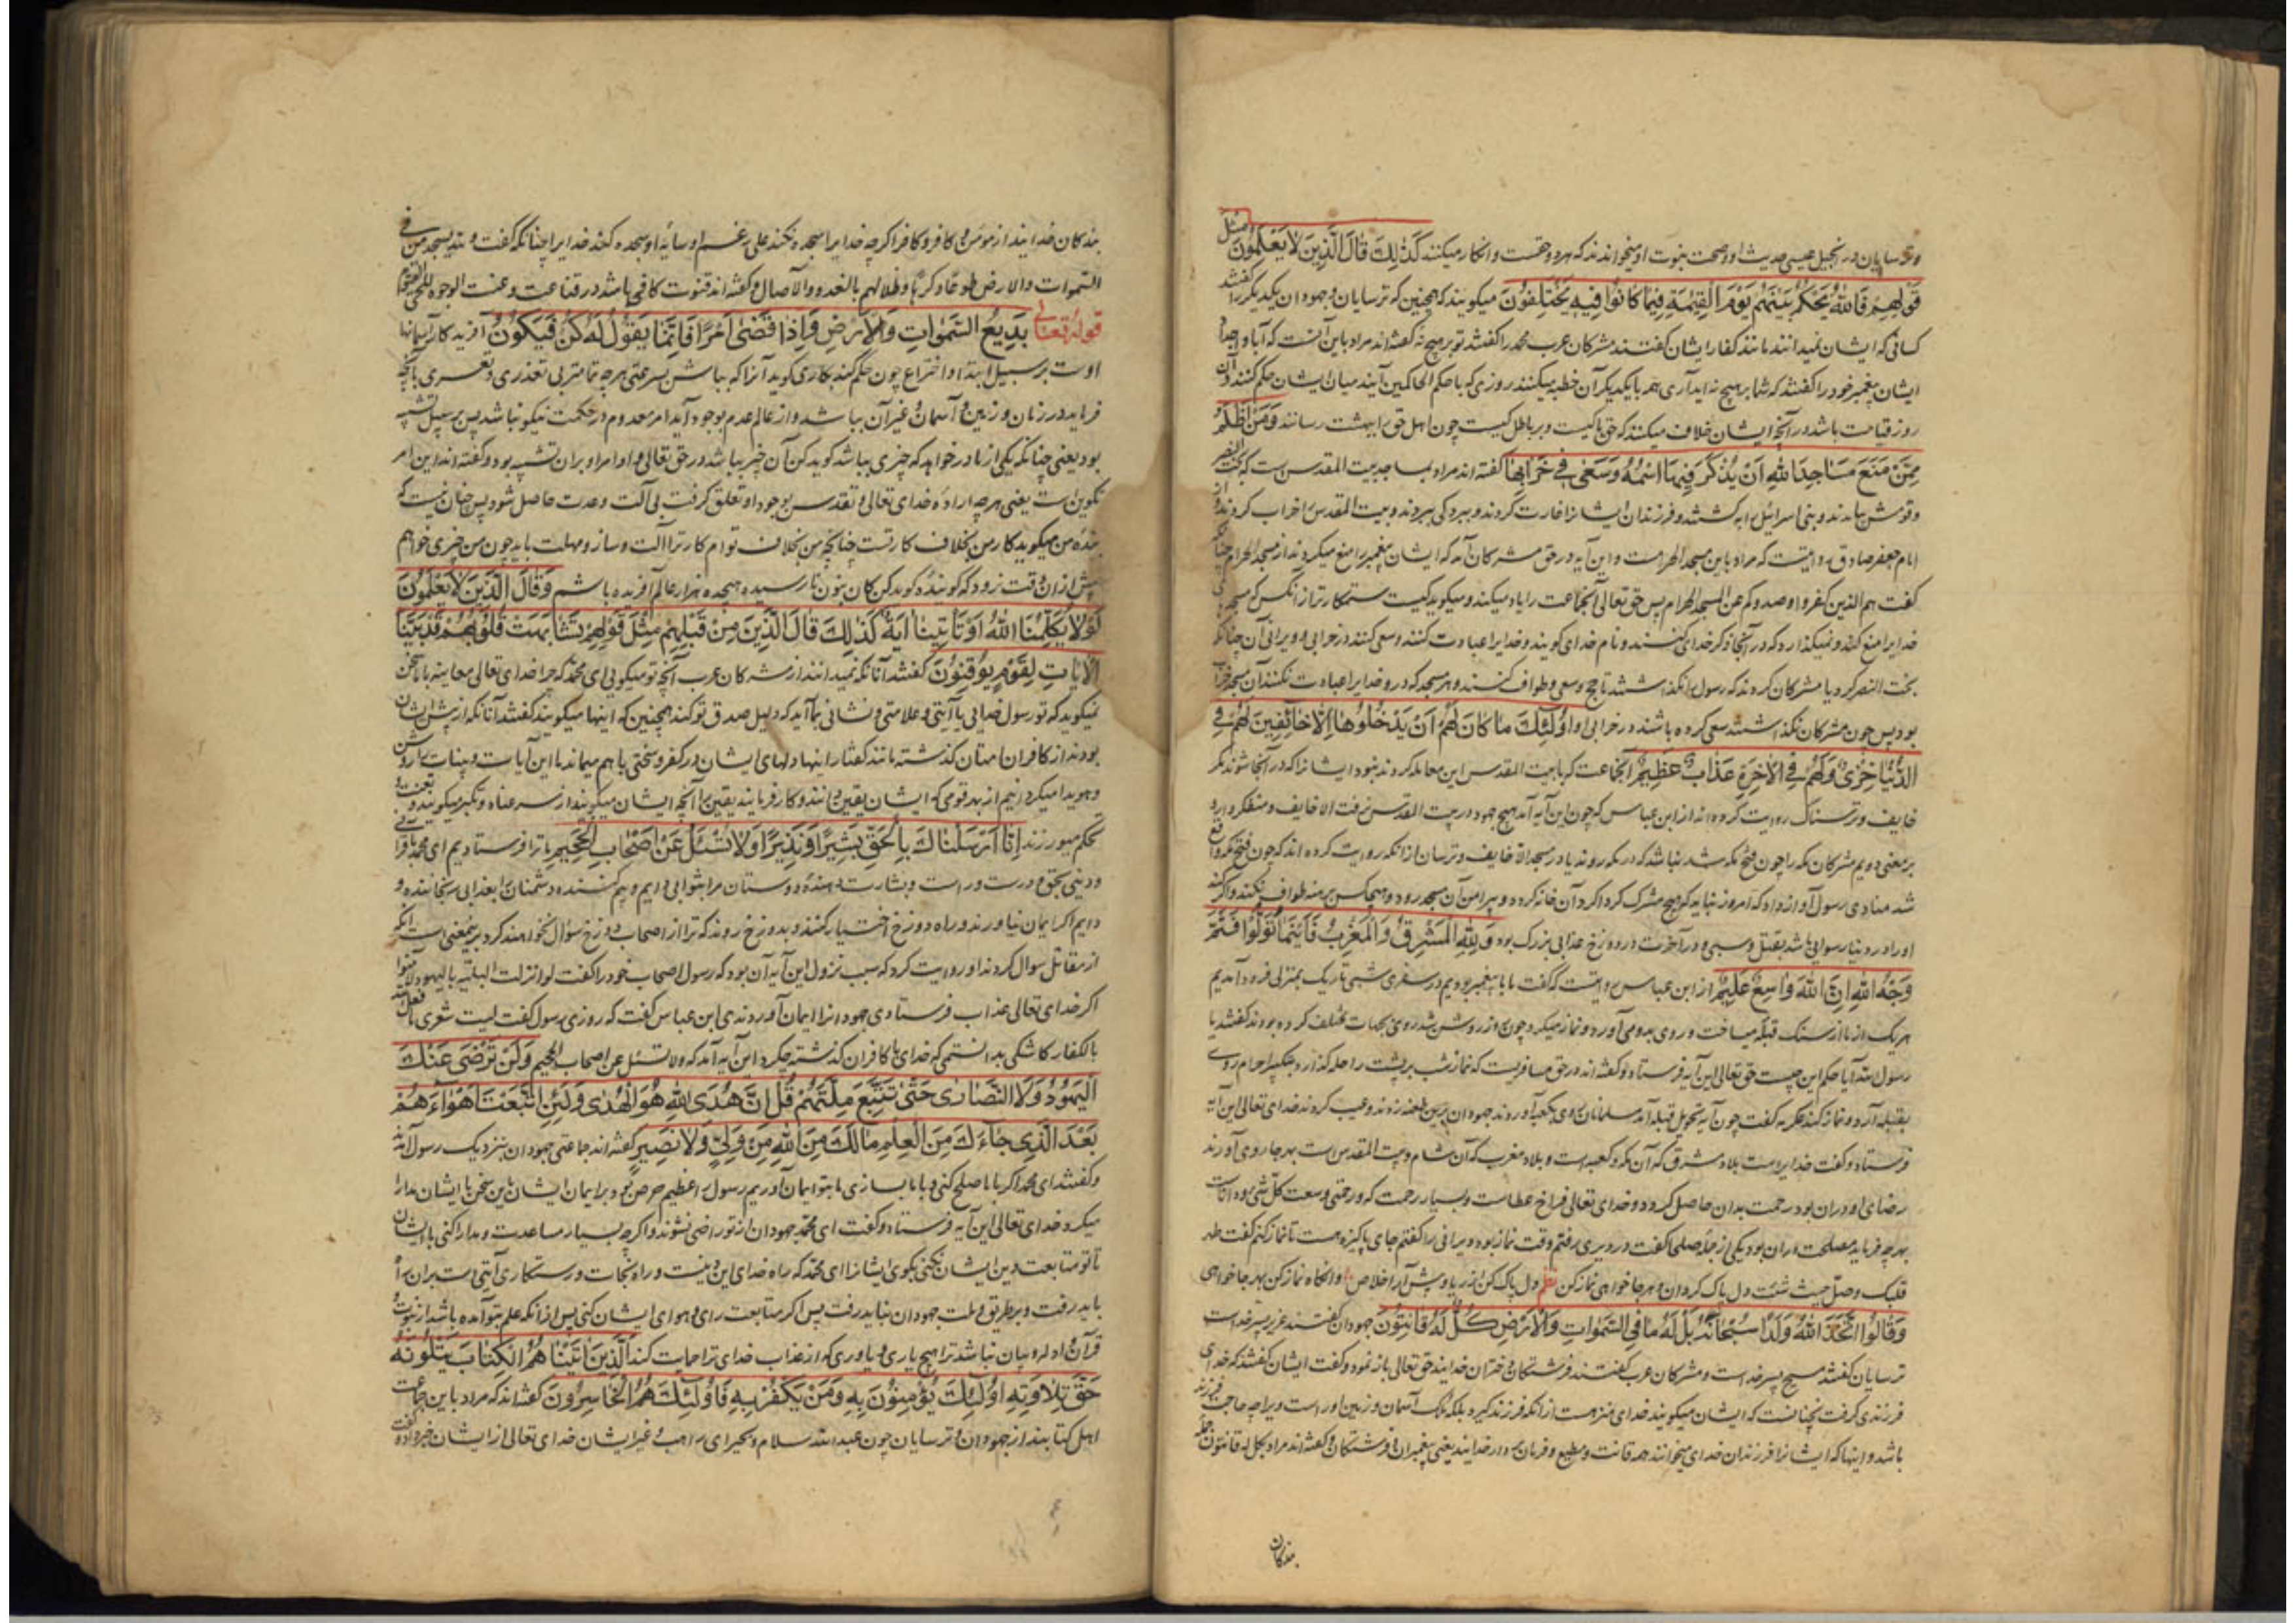 وترسایان در انجیل عیسی حدیث او وصحت نبوت او میخوانند که هر دو حقست وانکار میکنند کَذٰلِكَ قَالَ الَّذِینَ لَا یَعْلَمُونَ مِثْلَ
قَوْلِهِمْ فَاللّٰهُ یَحْکُمُ بَیْنَهُمْ یَوْمَ الْقِیٰمَةِ فِیمَا کَانُوا فِیهِ یَخْتَلِفُونَ میکویند که همچنین که ترسایان وجهودان یکدیکر را کفتند
کسانی که ایشان نمیدانند مانند کفار ایشان کفتند مشرکان عرب محمد را کفتند تو بر هیچ نه کفته‌اند مراد باین آنست که آبا و اجداد
ایشان پیغمبر خود را کفتند که شما بر هیچ نه اید آری هم با یکدیکر آن خطبه میکنند روزی که باحکم الحاکمین آیند میان ایشان حکم کنند وآن
روز قیامت باشد در آنچه ایشان خلاف میکنند که حق با کیست وبر باطل کیست چون اهل حق را ببهشت رسانند وَمَنْ اَظْلَمُ
مِمَّنْ مَنَعَ مَسَاجِدَ اللّٰهِ اَنْ یُذْکَرَ فِیهَا اسْمُهُ وَسَعٰی فِی خَرَابِهَا کفته اند مراد بمساجد بیت المقدس است که بخت النصر
وقومش بیامدند وبنی اسرائیل را بکشتند وفرزندان ایشانرا غارت کردند وببردکی ببردند وبیت المقدس را خراب کردند واز
امام جعفر صادق روایتست که مراد باین مسجد الحرامست واین آیه در حق مشرکان آمد که ایشان پیغمبر را منع میکردند از مسجد الحرام چنانکه
کفت هم الذین کفروا وصدوکم عن المسجد الحرام پس حق تعالی آنجماعت را یاد میکند ومیکوید کیست ستمکارتر از آنکس که مسجد
خدایرا منع کند ونمیکذارد که در آنجا ذکر خدای کنند ونام خدای کویند وخدایرا عبادت کنند وسعی کنند در خرابی وویرانی آن چنانکه
بخت النصر کرد یا مشرکان کردند که رسول را نکذاشتند تا حج وسعی وطواف کنند وهر مسجد که درو خدایرا عبادت نکنند آن مسجد خراب
بود پس چون مشرکان نکذاشتند سعی کرده باشند در خرابی او اُولٰئِكَ مَا کَانَ لَهُمْ اَنْ یَدْخُلُوهَا اِلَّا خَائِفِینَ لَهُمْ فِی
الدُّنْیَا خِزْیٌ وَلَهُمْ فِی الْاٰخِرَةِ عَذَابٌ عَظِیمٌ آنجماعت که با بیت المقدس این معامله کردند نبود ایشانرا که در آنجا شوند مکر
خایف وترسناک روایت کرده اند از ابن عباس که چون این آیه آمد هیچ جهود در بیت المقدس نرفت الا خایف ومتفکر
بر معنی دویم مشرکان مکه را چون فتح مکه شد نباشد که در مکه روند یا در مسجد الا خایف وترسان از آنکه روایت کرده اند که چون فتح مکه واقع
شد منادی رسول آواز داد که امروز نباید که هیچ مشرک کرداکرد آن خانه کردد وپیرامن آن مسجد رود وهیچکس برهنه طواف نکند واکر کند
او را در دنیا رسوایی باشد بقتل وسبی ودر آخرت در دوزخ عذابی بزرک بود وَلِلّٰهِ الْمَشْرِقُ وَالْمَغْرِبُ فَاَیْنَمَا تُوَلُّوا فَثَمَّ
وَجْهُ اللّٰهِ اِنَّ اللّٰهَ وَاسِعٌ عَلِیمٌ از ابن عباس روایتست که کفت ما با پیغمبر بودیم در سفری شبی تاریک بمنزلی فرود آمدیم
هر یک از ما از سنک قبله میساخت وروی بدو می آورد ونماز میکرد چون روز روشن شد روی بجهات مختلف کرده بودند کفتند یا
رسول الله آیا حکم این چیست حق تعالی این آیه فرستاد وکفته اند در حق مسافریست که نماز شب بر پشت راحله کذارد بتکبیر احرام روی
بقبله آرد ونماز کند عکرمه کفت چون آیه تحویل قبله آمد مسلمانان روی بکعبه آوردند جهودان برین طعنه زدند وعیب کردند خدای تعالی این آیه
فرستاد وکفت خدایراست بلاد مشرق که آن مکه وکعبه است وبلاد مغرب که آن شام وبیت المقدس است بهر جا روی آورند
رضای او در آن بود رحمت بدان حاصل کردد وخدای تعالی فراخ عطاست وبسیار رحمت که ورحمتی وسعت کل شی ودانات
بهر چه فرماید مصلحت در آن بود یکی از جمله صلحا کفت در دیری رفتم وقت نماز بود دیرانی را کفتم جای پاکیزه هست تا نماز کنم کفت طهر
قلبک وصل حیث شئت دل پاک کردان وهر جا خواهی نماز کن نظم دل پاک کن از ریا وپیش آر اخلاص وانکاه نماز کن بهر جا خواهی
وَقَالُوا اتَّخَذَ اللّٰهُ وَلَدًا سُبْحَانَهُ بَلْ لَهُ مَا فِی السَّمٰوَاتِ وَالْاَرْضِ کُلٌّ لَهُ قَانِتُونَ جهودان کفتند عزیر پسر خداست
ترسایان کفتند مسیح پسر خداست ومشرکان عرب کفتند فرشتکان دختران خدایند حق تعالی باز نمود وکفت ایشان کفتند که خدای
فرزندی کرفت نچنانست که ایشان میکویند خدای منزهست از آنکه فرزند کیرد بلکه ملک آسمان وزمین اوراست ویرا چه حاجت فرزند
باشد واینها که ایشانرا فرزندان خدای میخوانند همه قانت ومطیع وفرمان بردار خدایند یعنی پیغمبران وفرشتکان وکفته اند مراد بکل له قانتون جمله
بندکان
بندکان خدایند از مومن وکافر وکافر اکرچه خدایرا سجده نکند علی رغم او سایه او سجده کند خدایرا چنانکه کفت ولله یسجد من فی
السموات والارض طوعا وکرها وظلالهم بالغدو والآصال وکفته اند قنوت کافی باشد در قناعت وعنت الوجوه للحی القیوم
قوله تعالی بَدِیعُ السَّمٰوَاتِ وَالْاَرْضِ وَاِذَا قَضٰی اَمْرًا فَاِنَّمَا یَقُولُ لَهُ کُنْ فَیَکُونُ آفریدکار آسمانها
اوست بر سبیل ابتدا واختراع چون حکم کند بکاری کوید آنرا که بباش بسرعتی هر چه تمامتر بی تعذری وتعسری بآنچه
فرماید در زمان وزمین وآسمان وغیر آن بباشد واز عالم عدم بوجود آید امر معدوم در حکمت نیکو نباشد پس بر سبیل تشبیه
بود یعنی چنانکه یکی از ما در خواهد که چیزی بباشد کوید کن آن خیر بباشد در حق تعالی واوامر او بران تشبیه بود وکفته اند این امر
تکوین است یعنی هر چه اراده خدای تعالی وتقدس بوجود او تعلق کرفت بی آلت وعدت حاصل شود پس چنان نیست که
بنده من میکوید کار من بخلاف کار تست چنانچه من بخلاف توام کار ترا آلت وساز ومهلت باید چون من چیزی خواهم
پیش از آن وقت نرود که کوینده کوید کن کاف بنون نا رسیده هجده هزار عالم آفریده باشم وَقَالَ الَّذِینَ لَا یَعْلَمُونَ
لَوْلَا یُکَلِّمُنَا اللّٰهُ اَوْ تَاْتِینَا اٰیَةٌ کَذٰلِكَ قَالَ الَّذِینَ مِنْ قَبْلِهِمْ مِثْلَ قَوْلِهِمْ تَشَابَهَتْ قُلُوبُهُمْ قَدْ بَیَّنَّا
الْاٰیَاتِ لِقَوْمٍ یُوقِنُونَ کفتند آنانکه نمیدانند از مشرکان عرب آنچه تو میکویی ای محمد که چرا خدای تعالی معاینه با ما سخن
نمیکوید که تو رسول خدایی یا آیتی وعلامتی ونشانی بما آید که دلیل صدق تو کند همچنین که اینها میکویند کفتند آنانکه از پیش ایشان
بودند از کافران امتان کذشته مانند کفتار اینها دلهای ایشان در کفر وسختی باهم میماند ما این آیات وبینات را روشن
وهویدا میکردانیم از بهر قومی که ایشان یقین دانند وکار فرمایند یقین را آنچه ایشان میکویند از سر عناد وتکبر میکویند وتعنت و
تحکم میورزند اِنَّا اَرْسَلْنَاكَ بِالْحَقِّ بَشِیرًا وَنَذِیرًا وَلَا تُسْئَلُ عَنْ اَصْحَابِ الْجَحِیمِ ما ترا فرستادیم ای محمد با قرآنی
ودینی بحق ودرست وراست وبشارت دهنده دوستان مرا بثوابی دایم وبیم کننده دشمنان را بعذابی رنجاننده و
دایم اکر ایمان نیاورند وراه دوزخ اختیار کنند وبدوزخ روند که ترا از اصحاب دوزخ سؤال نخواهند کرد برینمعنی است آنکه
از مقاتل سوال کردند او روایت کرد که سبب نزول این آیه آن بود که رسول اصحاب خود را کفت لو انزلت البلیه بالیهود لآمنوا
اکر خدای تعالی عذاب فرستادی جهودانرا ایمان آوردندی ابن عباس کفت که روزی رسول کفت لیت شعری ما فعل الله
بالکفار کاشکی بدانستمی که خدای با کافران کذشته چکرد این آیه آمد که ولا تسئل عن اصحاب الجحیم وَلَنْ تَرْضٰی عَنْكَ
الْیَهُودُ وَلَا النَّصَارٰی حَتّٰی تَتَّبِعَ مِلَّتَهُمْ قُلْ اِنَّ هُدَی اللّٰهِ هُوَ الْهُدٰی وَلَئِنِ اتَّبَعْتَ اَهْوَاءَهُمْ
بَعْدَ الَّذِی جَاءَكَ مِنَ الْعِلْمِ مَا لَكَ مِنَ اللّٰهِ مِنْ وَلِیٍّ وَلَا نَصِیرٍ کفته اند جماعتی جهودان بنزدیک رسول آمدند
وکفتند ای محمد اکر با ما صلح کنی وبا ما بسازی ما بتو ایمان آوریم رسول را عظیم حرص بود بر ایمان ایشان باین سخن با ایشان مدارا
میکرد خدای تعالی این آیه فرستاد وکفت ای محمد جهودان از تو راضی نشوند واکرچه بسیار مساعدت ومدارا کنی با ایشان
تا تو متابعت دین ایشان نکنی بکوی ایشانرا ای محمد که راه خدای این دینست وراه نجات ورستکاری آنی است بران راه
باید رفت وبر طریق وملت جهودان نباید رفت پس اکر متابعت رای وهوای ایشان کنی پس از آنکه علم بتو آمده باشد از نبوت و
قرآن وادله وبیان نباشد ترا هیچ یاری ویاوری که از عذاب خدای ترا حمایت کند اَلَّذِینَ اٰتَیْنَاهُمُ الْکِتَابَ یَتْلُونَهُ
حَقَّ تِلَاوَتِهِ اُولٰئِكَ یُؤْمِنُونَ بِهِ وَمَنْ یَکْفُرْ بِهِ فَاُولٰئِكَ هُمُ الْخَاسِرُونَ کفته اند که مراد باین جماعت
اهل کتابیند از جهودان وترسایان چون عبد الله سلام وبحیرای راهب وغیر ایشان خدای تعالی از ایشان خبر داد وکفت